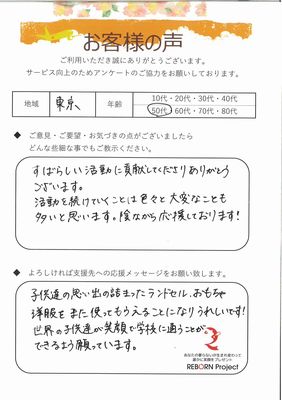 お客様の声
ご利用いただき誠にありがとうございます。
サービス向上のためアンケートのご協力をお願いしております。
地域 東京 年齢 10代・20代・30代・40代
50代・60代・70代・80代
◆ ご意見・ご要望・お気づきの点がございましたら
どんな些細な事でもご教示ください。
すばらしい活動に貢献してくださりありがとう
ございます。
活動を続けていくことは色々と大変なことも
多いと思います。陰ながら応援しております!
◆ よろしければ支援先への応援メッセージをお願い致します。
子供達の思い出の詰まったランドセル、おもちゃ
洋服をまた使ってもらえることになりうれしいです!
世界の子供達が笑顔で学校に通うことが
できるよう願っています。
あなたの要らないが生まれ変わって
誰かに笑顔をプレゼント
REBORN Project